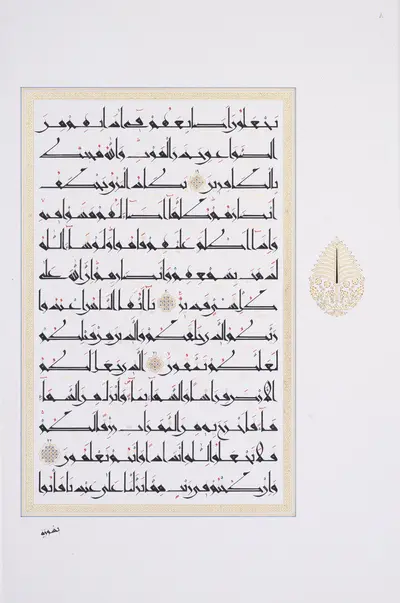 يجعلون أصابعهم في آذانهم من
الصواعق حذر الموت والله محيط
بالكافرين يكاد البرق يخطف
أبصارهم كلما أضاء لهم مشوا فيه
وإذا أظلم عليهم قاموا ولو شاء الله
لذهب بسمعهم وأبصارهم إن الله على
كل شيء قدير يا أيها الناس اعبدوا
ربكم الذي خلقكم والذين من قبلكم
لعلكم تتقون الذي جعل لكم
الأرض فراشا والسماء بناء وأنزل من السماء
ماء فأخرج به من الثمرات رزقا لكم
فلا تجعلوا لله أندادا وأنتم تعلمون
وإن كنتم في ريب مما نزلنا على عبدنا فأتوا
بسورة